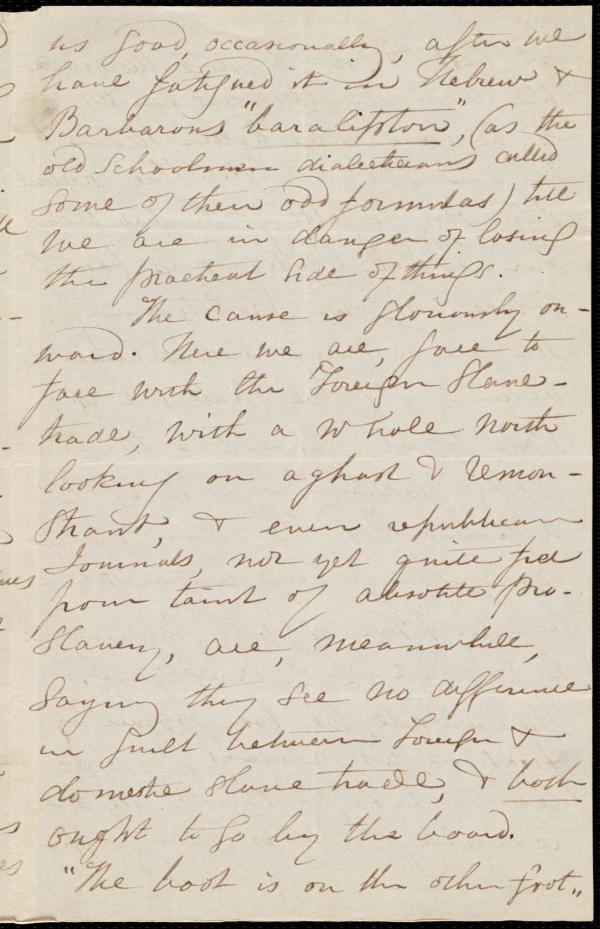 us good, occasionally, after we
have fatigued it in Hebrew &
Barbarous "baralipton", (as the
old Schoolmen dialecticians called
some of their odd formulas) till
we are in danger of losing
the practical side of things.
The cause is gloriously on-
ward. Here we are, face to
face with the Foreign Slave-
trade, with a whole North
looking on aghast & remon-
strant, & even republican
Journals, not yet quite free
from taint of absolute pro-
Slavery, are, meanwhile,
saying they see no difference
in guilt between Foreign &
domestic Slave trade, & both
ought to go by the board.
"The boot is on the other foot,"